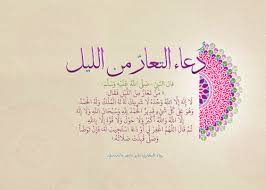 دعاء التعار من الليل
قال النبي صلى الله عليه وسلم:
« من تعار من الليل فقال:
لا إله إلا الله وحده لا شريك له له الملك وله الحمد
وهو على كل شيء قدير الحمد لله وسبحان الله ولا إله
إلا الله والله أكبر ولا حول ولا قوة إلا بالله
ثم قال اللهم اغفر لي أو دعا استجيب له فإن توضأ
وصلى قبلت صلاته»
رواه البخاري